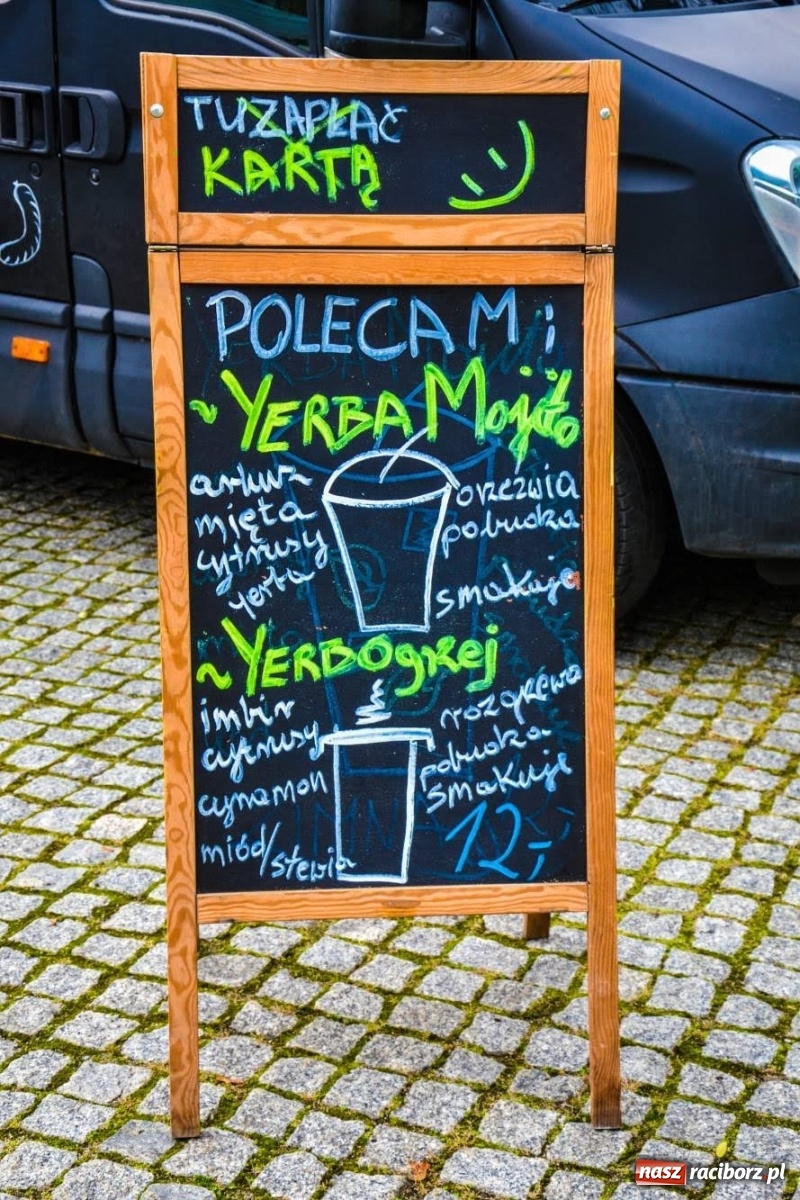 TU ZAPŁAĆ
KARTĄ
POLECAM:
~ YERBA MOJITO
arbuz
mięta
cytrusy
yerba
orzeźwia
pobudza
smakuje
~ YERBOGRZEJ
imbir
cytrusy
cynamon
miód/stewia
rozgrzewa
pobudza
smakuje
12,-
nasz raciborz.pl